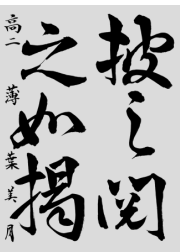 披之閲
之如掲
高二 薄葉美月